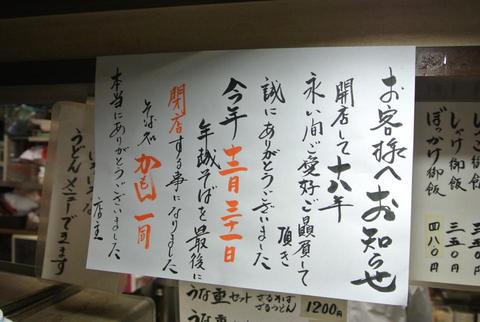 お客様へお知らせ
開店して十八年
永い間ご愛好ご贔屓して
頂き
誠にありがとうございました
今年十二月三十一日
年越そばを最後に
閉店する事になりました
そば処 かもし川 一同
本当にありがとうございました
店主
しゃけ御飯 三五〇円
ぼっかけ御飯 四八〇円
うどんメニューでます
うな重セット ざるそば
ざるうどん 1200円
うな重